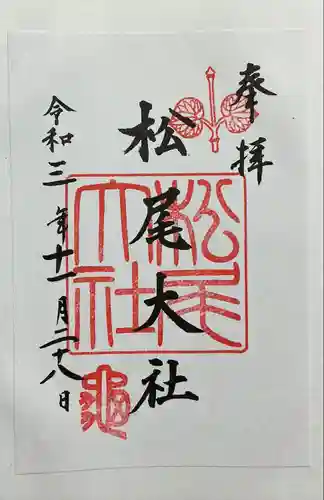 奉拝
松尾大社
令和三年十一月二十八日
松尾大社
亀